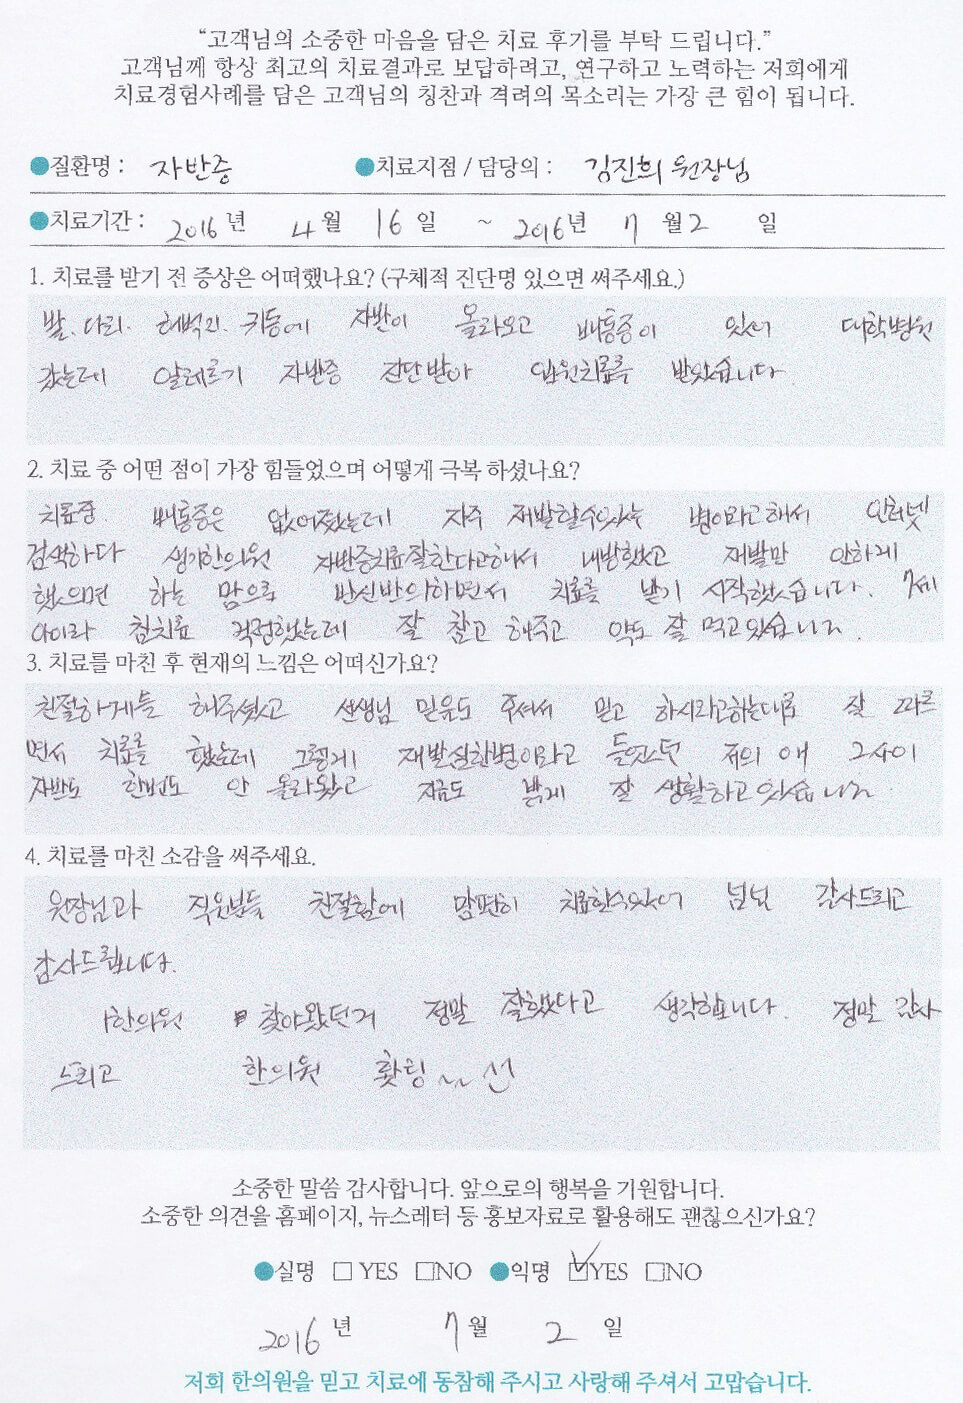 “고객님의 소중한 마음을 담은 치료 후기를 부탁 드립니다.”
고객님께 항상 최고의 치료결과로 보답하려고, 연구하고 노력하는 저희에게
치료경험사례를 담은 고객님의 칭찬과 격려의 목소리는 가장 큰 힘이 됩니다.
●질환명 : 자반증 ●치료지점 / 담당의 : 김진희 원장님
●치료기간 : 2016 년 4 월 16 일 ~ 2016 년 7 월 2 일
1. 치료를 받기 전 증상은 어떠했나요? (구체적 진단명 있으면 써주세요.)
발. 다리. 허벅지. 귀등에 자반이 올라오고 배통증이 있어 대학병원
갔는데 알레르기 자반증 진단받아 입원치료를 받았습니다.
2. 치료 중 어떤 점이 가장 힘들었으며 어떻게 극복 하셨나요?
치료중 배통증은 없어졌는데 자주 재발할수있는 병이라고해서 인터넷
검색하다 생기한의원 자반증치료잘한다고해서 내방했고 재발만 안하게
했으면 하는 맘으로 반신반의하면서 치료를 받기 시작했습니다. 7세
아이라 침치료 걱정했는데 잘 참고 해주고 약도 잘 먹고있습니다.
3. 치료를 마친 후 현재의 느낌은 어떠신가요?
친절하게들 해주셨고 선생님 믿음도 주셔서 믿고 하시라고하는대로 잘 따르
면서 치료를 했는데 그렇게 재발잘한병이라고 들었던 저의 애 그사이
자반도 한번도 안 올라왔고 지금도 밝게 잘 생활하고있습니다.
4. 치료를 마친 소감을 써주세요.
원장님과 직원분들 친절함에 맘편히 치료할수있어 넘넘 감사드리고
감사드립니다.
한의원 찾아왔던거 정말 잘했다고 생각합니다. 정말 감사
드리고 한의원 홧팅~~
소중한 말씀 감사합니다. 앞으로의 행복을 기원합니다.
소중한 의견을 홈페이지, 뉴스레터 등 홍보자료로 활용해도 괜찮으신가요?
●실명 □ YES □NO ●익명 ☑YES □NO
2016 년 7 월 2 일
저희 한의원을 믿고 치료에 동참해 주시고 사랑해 주셔서 고맙습니다.